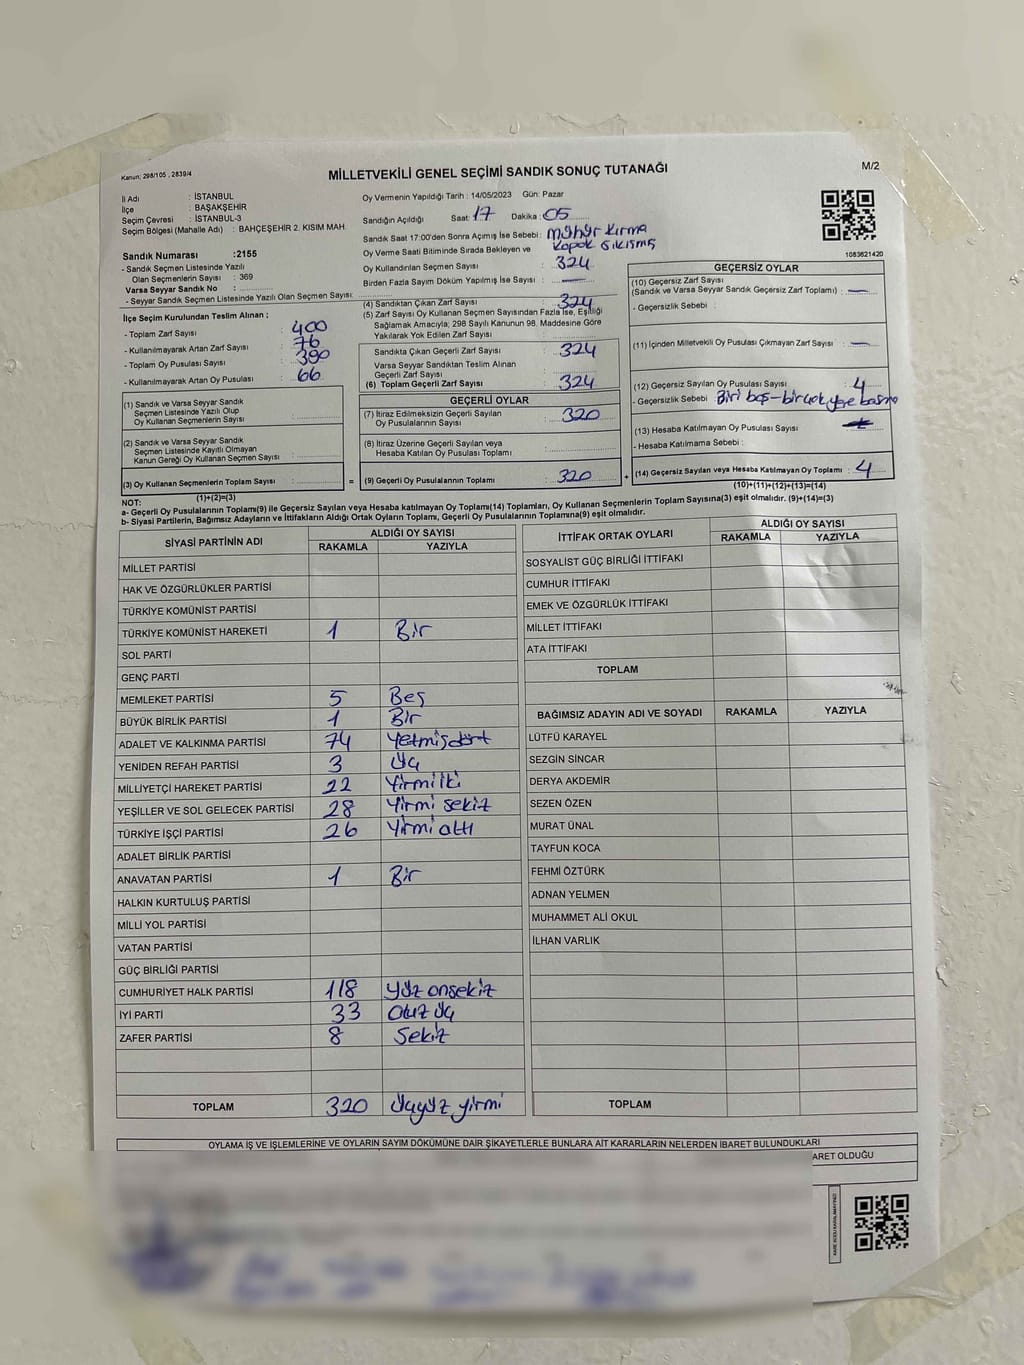 Kanun: 298/105 , 2839/4
MİLLETVEKİLİ GENEL SEÇİMİ SANDIK SONUÇ TUTANAĞI
M/2
İl Adı : İSTANBUL
İlçe : BAŞAKŞEHİR
Seçim Çevresi : İSTANBUL-3
Seçim Bölgesi (Mahalle Adı) : BAHÇEŞEHİR 2. KISIM MAH
Sandık Numarası :2155
- Sandık Seçmen Listesinde Yazılı
Olan Seçmenlerin Sayısı : 369
Varsa Seyyar Sandık No :
- Seyyar Sandık Seçmen Listesinde Yazılı Olan Seçmen Sayısı:
Oy Vermenin Yapıldığı Tarih : 14/05/2023 Gün: Pazar
Sandığın Açıldığı Saat: 17 Dakika : 05
Sandık Saat 17:00'den Sonra Açılmış İse Sebebi : mühür kırma
Oy Verme Saati Bitiminde Sırada Bekleyen ve kapak sıkışmış
Oy Kullandırılan Seçmen Sayısı : 324
Birden Fazla Sayım Döküm Yapılmış İse Sayısı : —
1083621420
İlçe Seçim Kurulundan Teslim Alınan ;
- Toplam Zarf Sayısı : 400
- Kullanılmayarak Artan Zarf Sayısı : 76
- Toplam Oy Pusulası Sayısı : 390
- Kullanılmayarak Artan Oy Pusulası : 66
(1) Sandık ve Varsa Seyyar Sandık
Seçmen Listesinde Yazılı Olup
Oy Kullanan Seçmenlerin Sayısı :
(2) Sandık ve Varsa Seyyar Sandık
Seçmen Listesinde Kayıtlı Olmayan
Kanun Gereği Oy Kullanan Seçmen Sayısı :
(3) Oy Kullanan Seçmenlerin Toplam Sayısı :
(4) Sandıktan Çıkan Zarf Sayısı : 324
(5) Zarf Sayısı Oy Kullanan Seçmen Sayısından Fazla İse, Eşitliği
Sağlamak Amacıyla; 298 Sayılı Kanunun 98. Maddesine Göre
Yakılarak Yok Edilen Zarf Sayısı :
Sandıkta Çıkan Geçerli Zarf Sayısı : 324
Varsa Seyyar Sandıktan Teslim Alınan
Geçerli Zarf Sayısı :
(6) Toplam Geçerli Zarf Sayısı : 324
GEÇERLİ OYLAR
(7) İtiraz Edilmeksizin Geçerli Sayılan
Oy Pusulalarının Sayısı : 320
(8) İtiraz Üzerine Geçerli Sayılan veya
Hesaba Katılan Oy Pusulası Toplamı :
= (9) Geçerli Oy Pusulalarının Toplamı : 320 +
GEÇERSİZ OYLAR
(10) Geçersiz Zarf Sayısı
(Sandık ve Varsa Seyyar Sandık Geçersiz Zarf Toplamı) : —
- Geçersizlik Sebebi :
(11) İçinden Milletvekili Oy Pusulası Çıkmayan Zarf Sayısı : —
(12) Geçersiz Sayılan Oy Pusulası Sayısı : 4
- Geçersizlik Sebebi Biri boş-birçok yere basma
(13) Hesaba Katılmayan Oy Pusulası Sayısı :
- Hesaba Katılmama Sebebi :
(14) Geçersiz Sayılan veya Hesaba Katılmayan Oy Toplamı : 4
(1)+(2)=(3)
(10)+(11)+(12)+(13)=(14)
NOT:
a- Geçerli Oy Pusulalarının Toplamı(9) ile Geçersiz Sayılan veya Hesaba katılmayan Oy Toplamı(14) Toplamları, Oy Kullanan Seçmenlerin Toplam Sayısına(3) eşit olmalıdır. (9)+(14)=(3)
b- Siyasi Partilerin, Bağımsız Adayların ve İttifakların Aldığı Ortak Oyların Toplamı, Geçerli Oy Pusulalarının Toplamına(9) eşit olmalıdır.
SİYASİ PARTİNİN ADI
ALDIĞI OY SAYISI
RAKAMLA YAZIYLA
MİLLET PARTİSİ
HAK VE ÖZGÜRLÜKLER PARTİSİ
TÜRKİYE KOMÜNİST PARTİSİ
TÜRKİYE KOMÜNİST HAREKETİ 1 Bir
SOL PARTİ
GENÇ PARTİ
MEMLEKET PARTİSİ 5 Beş
BÜYÜK BİRLİK PARTİSİ 1 Bir
ADALET VE KALKINMA PARTİSİ 74 Yetmişdört
YENİDEN REFAH PARTİSİ 3 Üç
MİLLİYETÇİ HAREKET PARTİSİ 22 Yirmi iki
YEŞİLLER VE SOL GELECEK PARTİSİ 28 Yirmi sekiz
TÜRKİYE İŞÇİ PARTİSİ 26 Yirmi altı
ADALET BİRLİK PARTİSİ
ANAVATAN PARTİSİ 1 Bir
HALKIN KURTULUŞ PARTİSİ
MİLLİ YOL PARTİSİ
VATAN PARTİSİ
GÜÇ BİRLİĞİ PARTİSİ
CUMHURİYET HALK PARTİSİ 118 Yüz onsekiz
İYİ PARTİ 33 Otuz üç
ZAFER PARTİSİ 8 Sekiz
TOPLAM 320 Üçyüz yirmi
İTTİFAK ORTAK OYLARI
ALDIĞI OY SAYISI
RAKAMLA YAZIYLA
SOSYALİST GÜÇ BİRLİĞİ İTTİFAKI
CUMHUR İTTİFAKI
EMEK VE ÖZGÜRLÜK İTTİFAKI
MİLLET İTTİFAKI
ATA İTTİFAKI
TOPLAM
BAĞIMSIZ ADAYIN ADI VE SOYADI RAKAMLA YAZIYLA
LÜTFÜ KARAYEL
SEZGİN SİNCAR
DERYA AKDEMİR
SEZEN ÖZEN
MURAT ÜNAL
TAYFUN KOCA
FEHMİ ÖZTÜRK
ADNAN YELMEN
MUHAMMET ALİ OKUL
İLHAN VARLIK
TOPLAM
OYLAMA İŞ VE İŞLEMLERİNE VE OYLARIN SAYIM DÖKÜMÜNE DAİR ŞİKAYETLERLE BUNLARA AİT KARARLARIN NELERDEN İBARET BULUNDUKLARI
ARET OLDUĞU